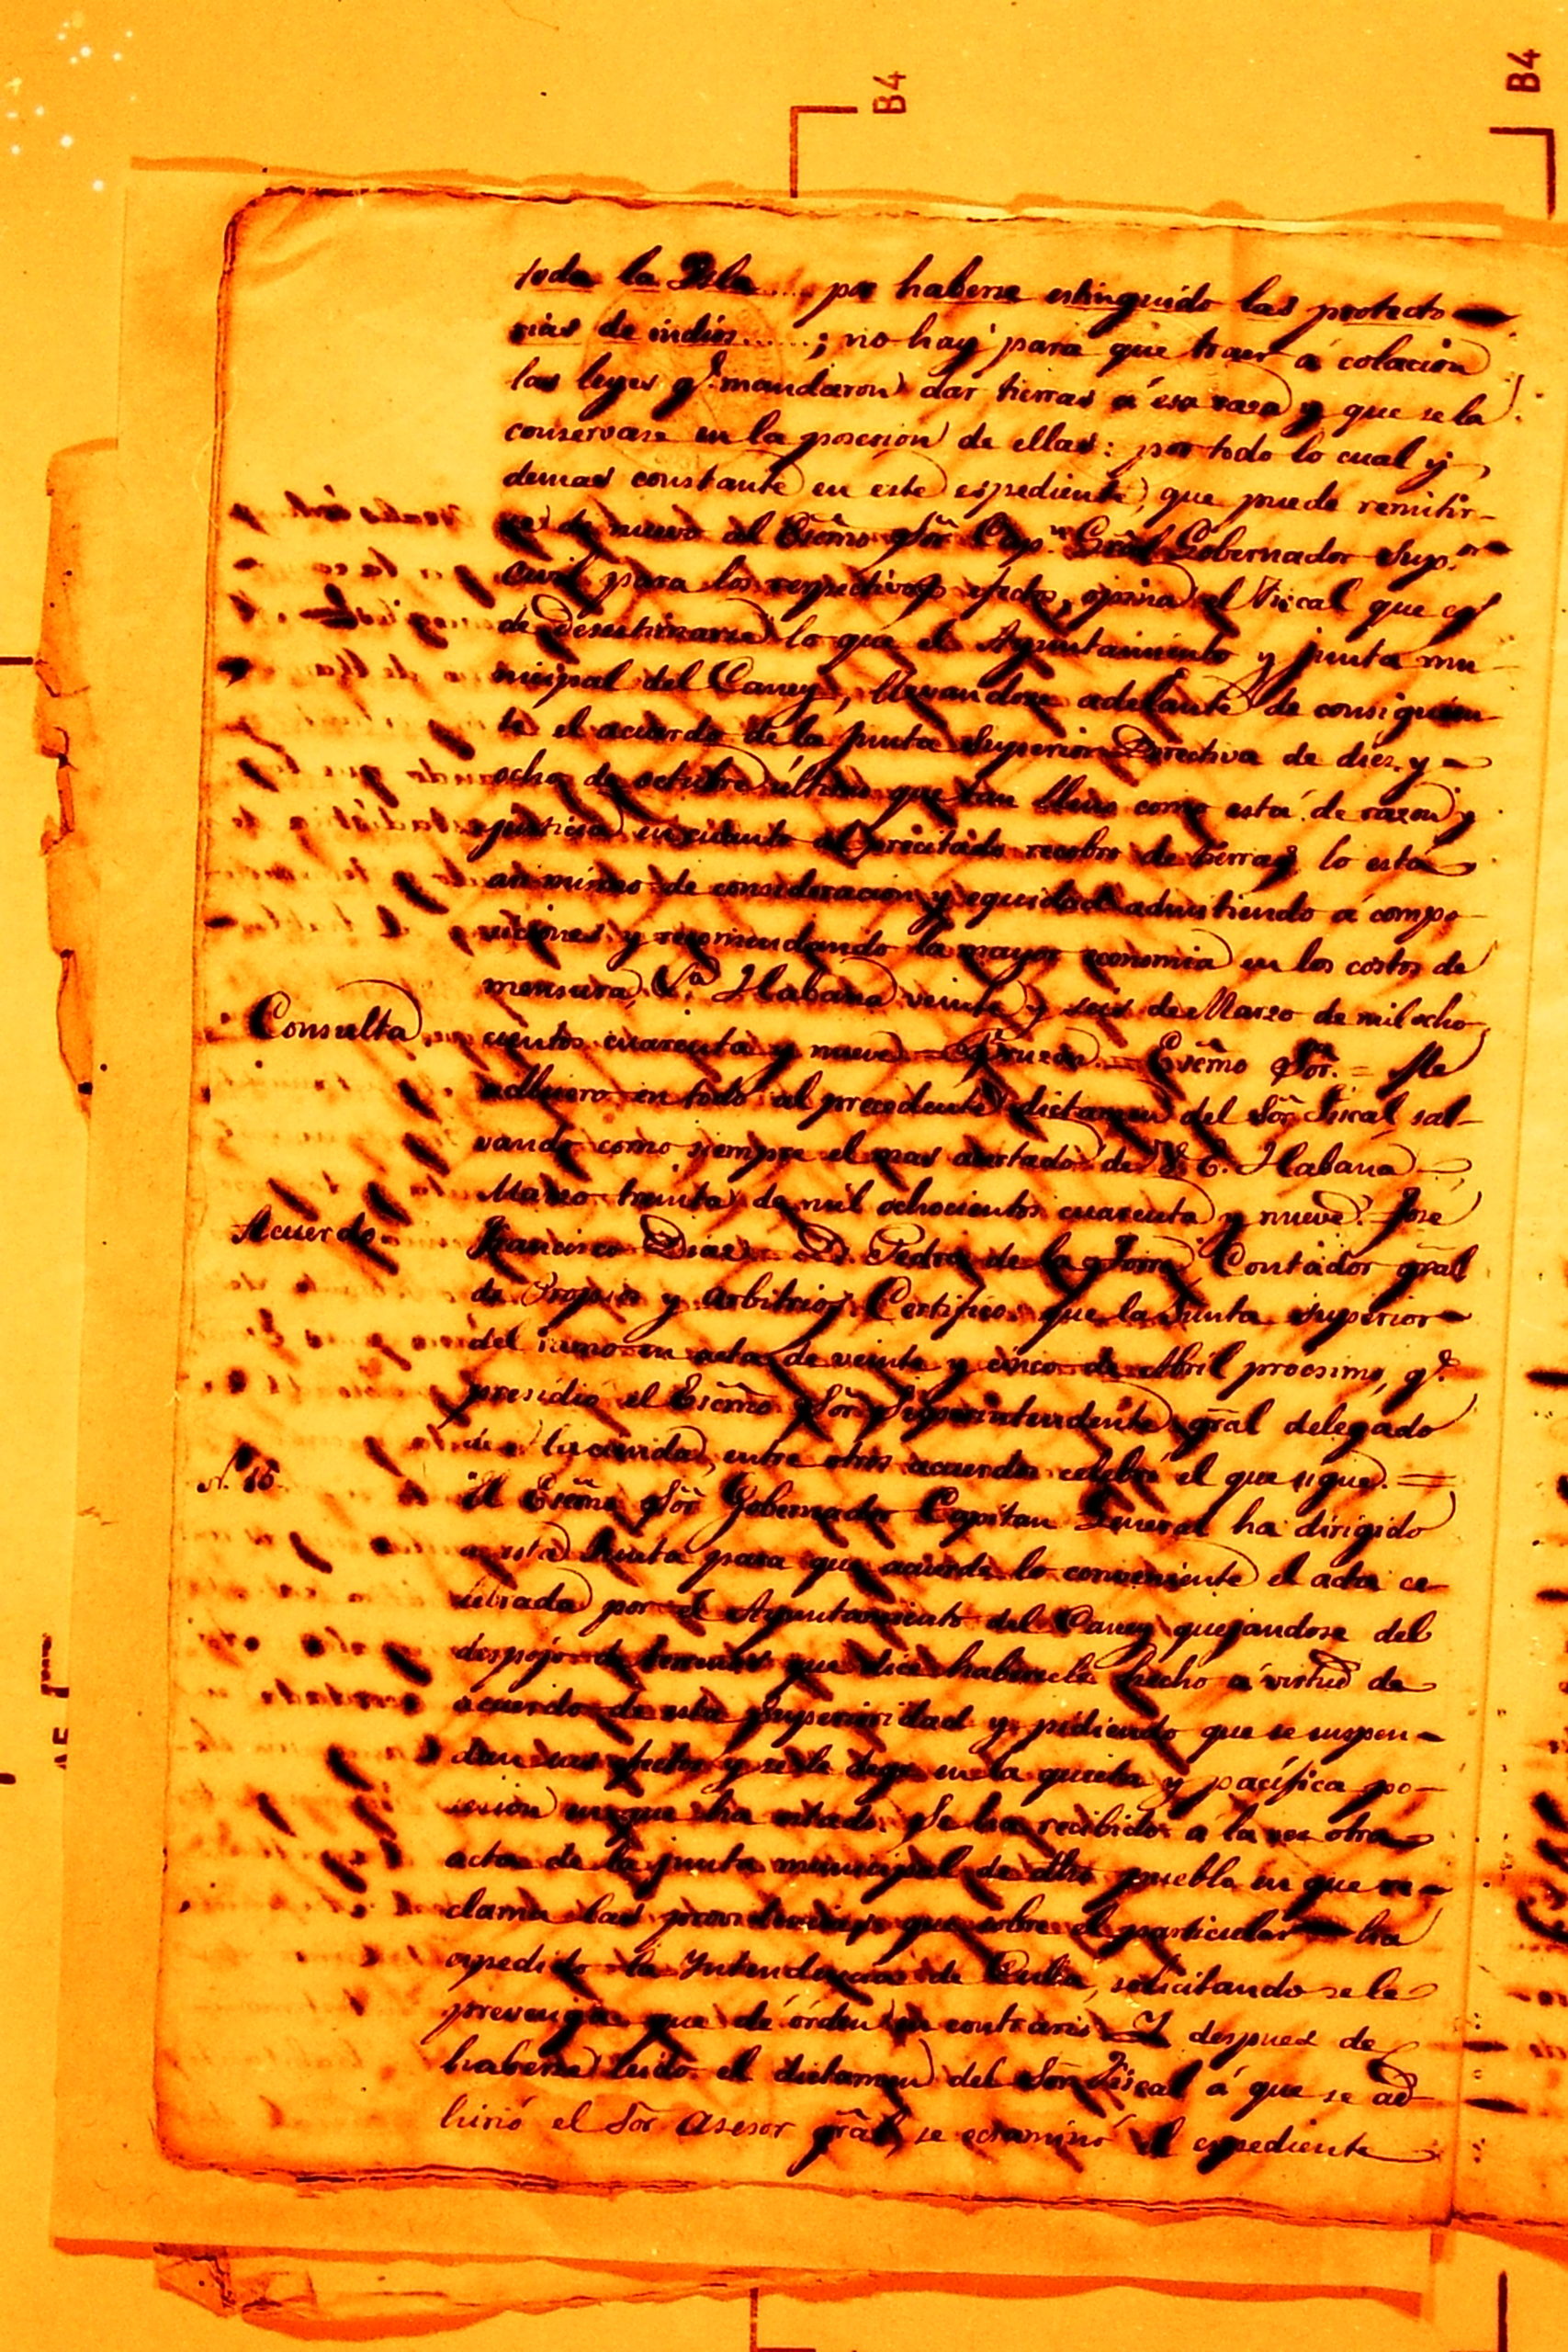 B4
B4
toda la Isla.... por haberse estinguido las protecto
rias de indios......; no hay para que traer á colacion
las leyes q.e mandaron dar tierras á esa raza y que se la
conservase en la posesion de ellas: por todo lo cual y
demas constante en este espediente, que puede remitir-
se de nuevo al Escmo Sõr Cap.n Grãl Gobernador Sup.or
Civil para los respectivos efectos, opina el Fiscal que es
de desestimarse lo que el Ayuntamiento y junta mu-
nicipal del Caney, llevandose adelante de consiguien
te el acuerdo de la Junta Superior Directiva de diez y
ocho de octubre último que tan lleno como está de razon y
justicia en cuanto al precitado recobro de tierras, lo está
asi mismo de consideracion y equidad admitiendo á compo-
siciones y recomendando la mayor economia en los costos de
mensura. V.a Habana veinte y seis de Marzo de mil ocho
Consulta
cientos cuarenta y nueve = = Escmo Sõr. = Me
adhiero en todo al precedente dictamen del Sõr Fiscal, sal-
vando como siempre el mas acertado de V. E. Habana
Marzo treinta de mil ochocientos cuarenta y nueve. José
Acuerdo
Francisco Diaz = D. Pedro de la Torre, Contador grãl
de Propios y arbitrios, Certifico: que la Junta Superior
del ramo en acta de veinte y cinco de Abril procsimo, q.e
presidió el Escmo Sõr Superintendente grãl delegado
entre otros acuerdos celebró el que sigue. =
N. 16.
El Escmo Sõr Gobernador Capitan General ha dirigido
a esta Junta para que acuerde lo conveniente el acta ce-
lebrada por el Ayuntamiento del Caney quejandose del
despojo de terrenos que dice habersele hecho á virtud de
acuerdo de esta Superioridad y pidiendo que se suspen-
dan sus efectos y se le deje en la quieta y pacífica po-
sesion en que ha estado. Se ha recibido á la vez otra
acta de la junta municipal de dho pueblo en que re-
clama las providencias que sobre el particular ha
espedido la Intendencia de Cuba, solicitando se le
prevenga que dé órden en contrario. Y despues de
haberse leido el dictamen del Sõr Fiscal á que se ad
hirió el Sõr Asesor grãl, se ecsaminó el espediente